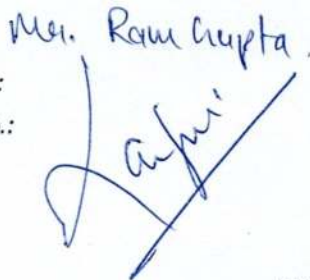 Mr. Ram Gupta.
:
.: